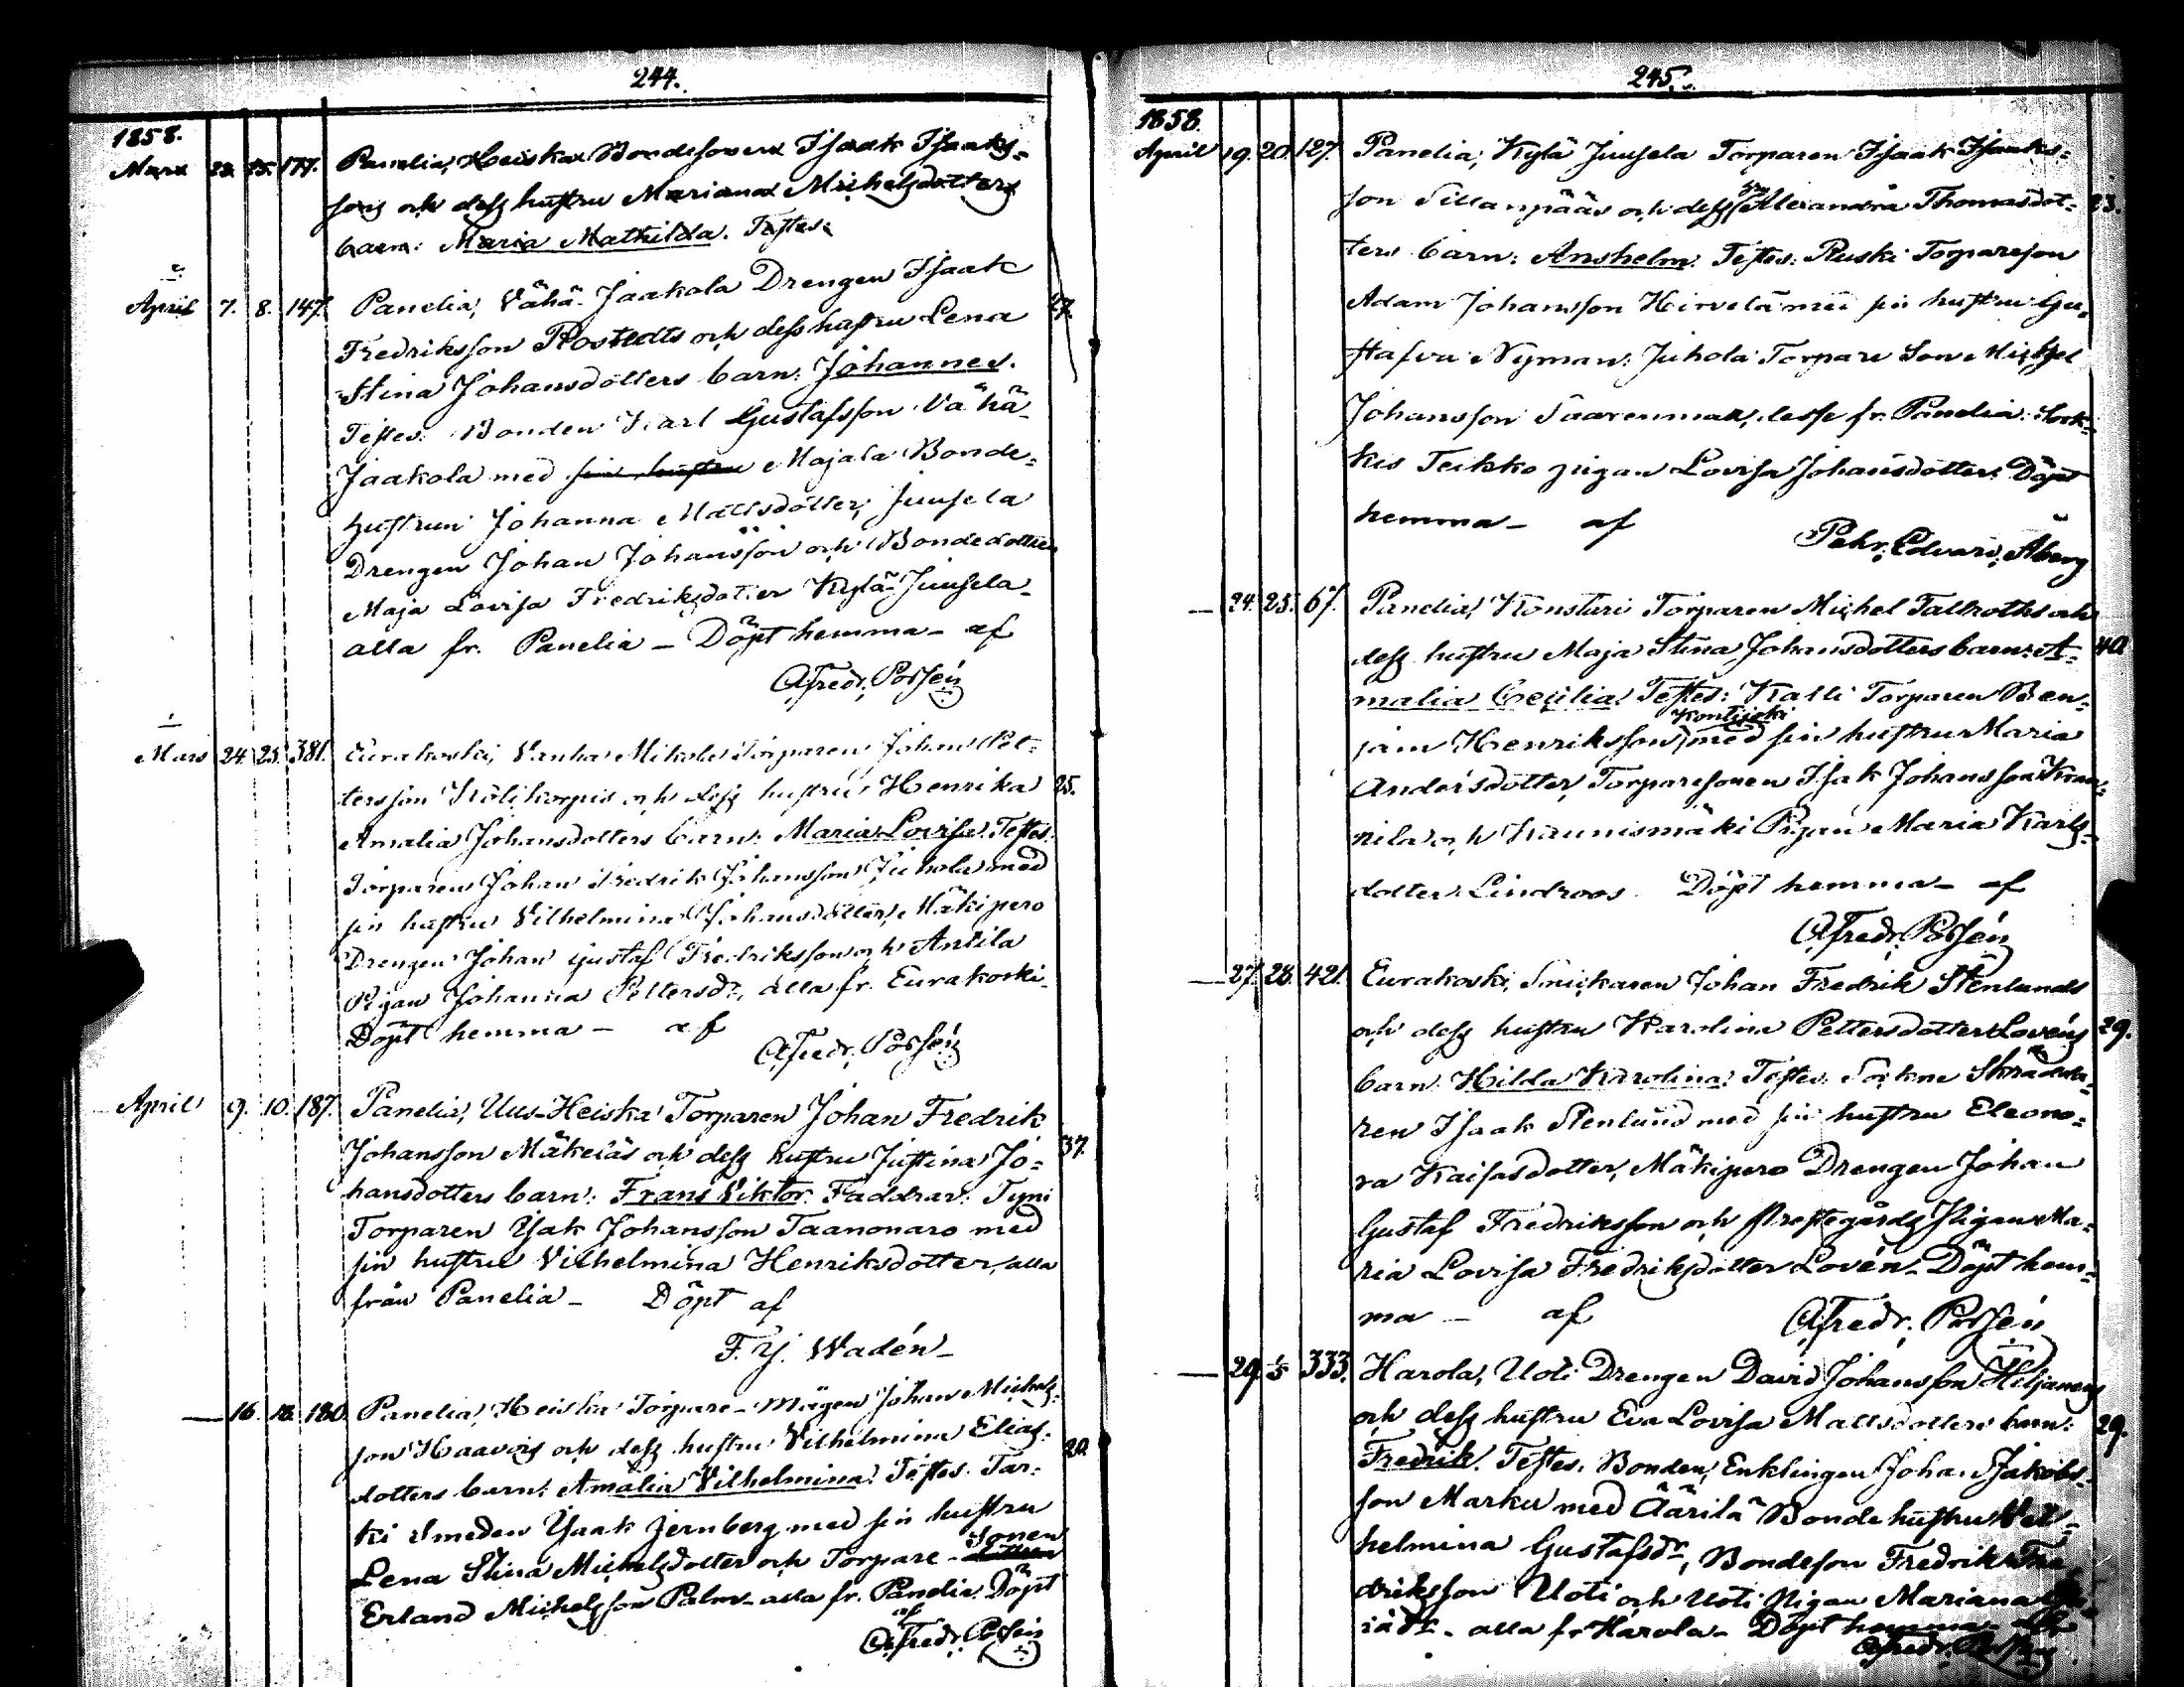 244.
1858.
Mars 23. 25. 177. Panelia, Heiska Bondesonens Isaak Isaaks-
sons och dess hustru Mariana Michelsdotters
barn: Maria Mathilda. Testes:
April 7. 8. 147. Panelia, Vähä-Jaakola Drengen Isaak
27.
Fredriksson Rostedts och dess hustru Lena
Stina Johansdotters barn: Johannes.
Testes: Bonden Karl Gustafsson Vähä-
Jaakola med sin hustru Majala Bonde-
hustrun Johanna Mattsdotter, Juusela
Drengen Johan Johansson och Bondedottren
Maja Lovisa Fredriksdotter Kylä-Juusela
alla fr. Panelia – Döpt hemma – af
Alfredr. Porsén
Mars 24. 25. 381. Eurakoski, Vanha Mikola Torparen Johan Pet-
tersson Kölikorpis och dess hustru Henrika 25.
Amalia Johansdotters barn: Maria Lovisa. Testes:
Torparen Johan Fredrik Johansson Juhola med
sin hustru Vilhelmina Johansdotter, Mäkipero
Drengen Johan Gustaf Fredriksson och Antila
Pigan Johanna Pettersdr, alla fr. Eurakoski
Döpt hemma – af
Alfredr. Porsén
April 9. 10. 187. Panelia, Uus-Heiska Torparen Johan Fredrik
Johansson Mäkeläs och dess hustru Justina Jo- 37.
hansdotters barn: Frans Viktor. Faddrar: Tyni
Torparen Isak Johansson Taanonaro med
sin hustru Vilhelmina Henriksdotter, alla
från Panelia – Döpt af
F. J. Wadén –
— 16. 18. 180. Panelia, Heiska Torpare-Mågen Johan Michels-
son Haavois och dess hustru Vilhelmina Elias- 20.
dotters barn: Amalia Vilhelmina. Testes: Tar-
ki Smeden Isaak Jernberg med sin hustru
Lena Stina Michelsdotter och Torpare-Sonen
Erland Michelsson Palm – alla fr. Panelia. Döpt
af
Alfredr. Porsén
245.
1858.
April 19. 20. 127. Panelia, Kylä Juusela Torparen Isaak Isaaks-
son Sillanpääs och dess hru Alexandra Thomasdot- 23.
ters barn: Anshelm. Testes: Ruski Torpareson
Adam Johansson Hirvelä med sin hustru Gu-
stafva Nyman: Juhola Torpare Son Michel
Johansson Saarenmaa, desse fr. Panelia: Sork-
kis Teikko pigan Lovisa Johansdotter: Döpt
hemma – af
Pehr Edvard Åberg
— 24. 25. 67. Panelia, Konsturi Torparen Michel Tallroths och
dess hustru Maja Stina Johansdotters barn: A- 40.
malia Cecilia. Testes: Kalli Torparen Ben-
jam Henriksson Kontijoki med sin hustru Maria
Andersdotter, Torparesonen Isak Johansson Kran-
nila och Kaunismäki Pigan Maria Karls-
dotter Lindroos. Döpt hemma – af
Alfredr. Porsén
— 27. 28. 421. Eurakoski, Snickaren Johan Fredrik Stenlunds
och dess hustru Karolina Pettersdotter Lovéns 29.
barn: Hilda Karolina. Testes: Sockne Skrädda-
ren Isaak Stenlund med sin hustru Eleono-
ra Kaisasdotter, Mäkipero Drengen Johan
Gustaf Fredriksson och Prestegårds Pigan Ma-
ria Lovisa Fredriksdotter Lovén – Döpt hem-
ma – af
Alfredr. Porsén
— 29. 1/5 333. Harola, Uoti Drengen David Johansson Hiljanens
och dess hustru Eva Lovisa Mattsdotters barn: 29.
Fredrik. Testes: Bonden, Enklingen Johan Jakobs-
son Marku med Äärilä Bondehustru Vil-
helmina Gustafsdr, Bondeson Fredrik Fre-
driksson Uoti och Uoti Pigan Mariana
alla fr Harola – Döpt hemma – af
Alfredr. Porsén